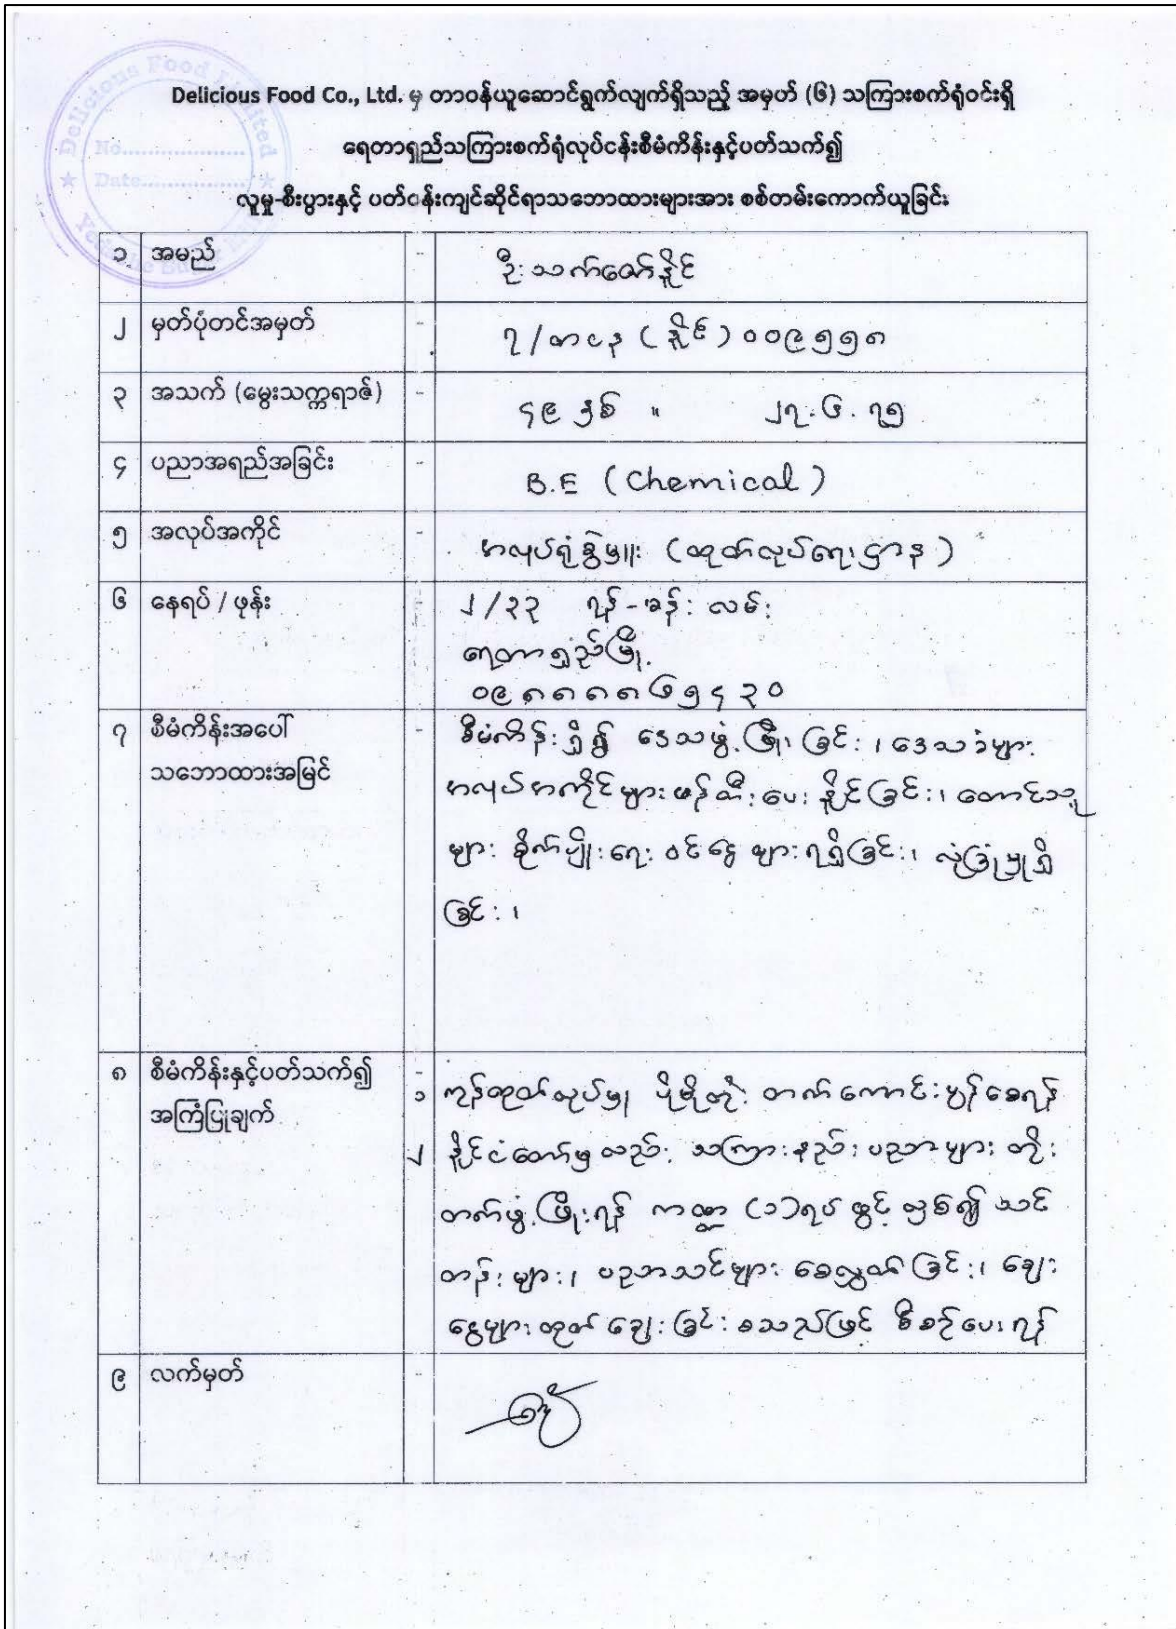 Delicious Food Limited
No....................
Date.................
Delicious Food Co., Ltd. မှ တာဝန်ယူဆောင်ရွက်လျက်ရှိသည့် အမှတ် (၆) သကြားစက်ရုံဝင်းရှိ
ရေတာရှည်သကြားစက်ရုံလုပ်ငန်းစီမံကိန်းနှင့်ပတ်သက်၍
လူမှု-စီးပွားနှင့် ပတ်ဝန်းကျင်ဆိုင်ရာသဘောထားများအား စစ်တမ်းကောက်ယူခြင်း
၁ အမည် - ဦးသက်ဇော်နိုင်
၂ မှတ်ပုံတင်အမှတ် - ၇/တငန (နိုင်) ၀၀၉၅၅၈
၃ အသက် (မွေးသက္ကရာဇ်) - ၄၉ နှစ် ။ ၂၇.၆.၇၅
၄ ပညာအရည်အခြင်း - B.E (Chemical)
၅ အလုပ်အကိုင် - အလုပ်ရုံခွဲမှူး (ထုတ်လုပ်ရေးဌာန)
၆ နေရပ် / ဖုန်း - ၂/၃၃ ရန်-ခန်းလမ်း
ရေတာရှည်မြို့
၀၉ ၈၈၈၈ ၆၅၄၃၀
၇ စီမံကိန်းအပေါ် - စီမံကိန်းရှိ၍ ဒေသဖွံ့ဖြိုးခြင်း၊ ဒေသခံများ
သဘောထားအမြင် အလုပ်အကိုင်များဖန်တီးပေးနိုင်ခြင်း၊ တောင်သူ
များ စိုက်ပျိုးရေး ဝင်ငွေများရရှိခြင်း၊ လုံခြုံမှုရှိ
ခြင်း၊
၈ စီမံကိန်းနှင့်ပတ်သက်၍ - ၁ ကုန်ထုတ်လုပ်မှု ပိုမိုတိုးတက်ကောင်းမွန်စေရန်
အကြံပြုချက် ၂ နိုင်ငံတော်မှလည်း သကြားနည်းပညာများ တိုး
တက်ဖွံ့ဖြိုးရန် ကဏ္ဍ (၁)ရပ် ထွင့်ညှစ်၍ သင်
တန်းများ၊ ပညာသင်များ စေလွှတ်ခြင်း၊ ချေး
ငွေများထုတ်ချေးခြင်း စသည်ဖြင့် စီစဉ်ပေးရန်
၉ လက်မှတ် -